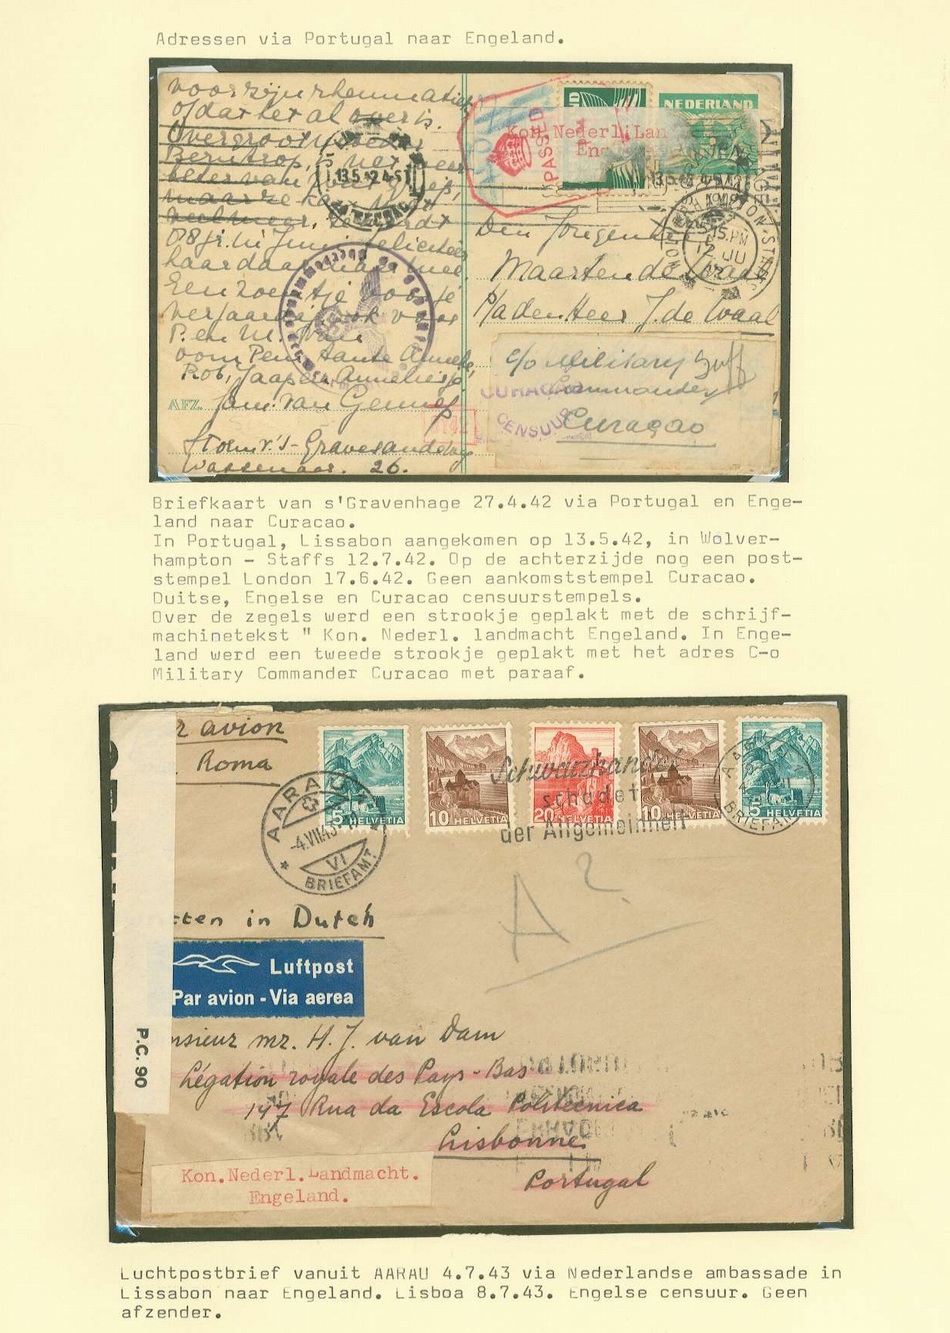 Adressen via Portugal naar Engeland.
voor zijn rheumatiek
of dat het al over is.
13.5.42
haardaag
Een zoentje voor je
verjaardag ook voor
P. en M. van
oom Pem, tante Annelies,
Rob, Jaap en Anneliesje
AFZ. Jam. van Gennep
Wassenaar. 26.
NEDERLAND
Kon. Nederl. Lan
Eng
PASSED
Den Jongen
Maarten de Waal
p/a den Heer J. de Waal
c/o Military
Commander
Curaçao
CURACAO
CENSUUR
Briefkaart van s'Gravenhage 27.4.42 via Portugal en Enge-
land naar Curacao.
In Portugal, Lissabon aangekomen op 13.5.42, in Wolver-
hampton - Staffs 12.7.42. Op de achterzijde nog een post-
stempel London 17.6.42. Geen aankomststempel Curacao.
Duitse, Engelse en Curacao censuurstempels.
Over de zegels werd een strookje geplakt met de schrijf-
machinetekst " Kon. Nederl. landmacht Engeland. In Enge-
land werd een tweede strookje geplakt met het adres C-o
Military Commander Curacao met paraaf.
avion
Roma
5 HELVETIA
10 HELVETIA
20 HELVETIA
10 HELVETIA
5 HELVETIA
Schwarzhandel
schadet
der Allgemeinheit
AARAU
-4.VII.43
VI
BRIEFAMT
A?
tten in Dutch
Luftpost
Par avion - Via aerea
P.C. 90
nsieur mr. H. J. van Dam
Légation royale des Pays-Bas
147 Rua da Escola Politecnica
Lisbonne
Portugal
Kon.Nederl.Landmacht.
Engeland.
Luchtpostbrief vanuit AARAU 4.7.43 via Nederlandse ambassade in
Lissabon naar Engeland. Lisboa 8.7.43. Engelse censuur. Geen
afzender.